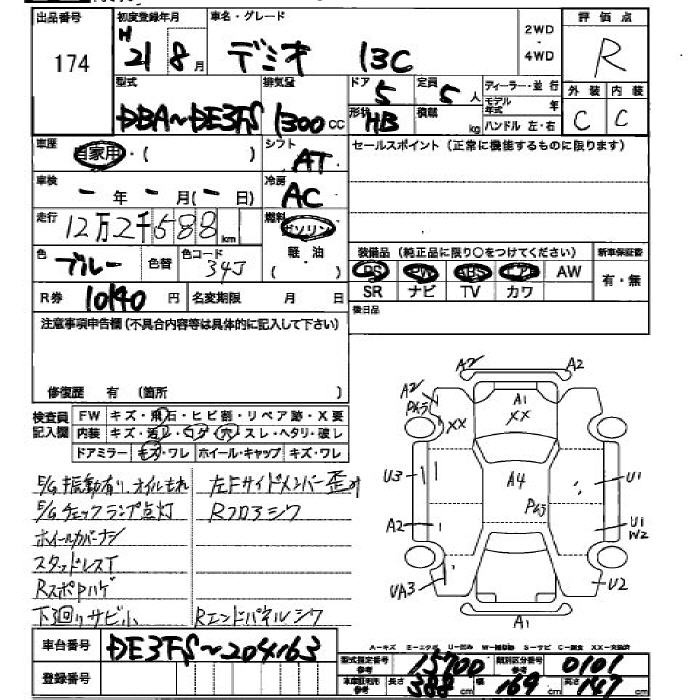 出品番号
174
初度登録年月
H 21 8月
車名・グレード
デミオ 13C
2WD
・
4WD
評価点
R
型式
DBA~DE3FS
排気量
1300 cc
ドア
5
形状
HB
定員
5人
積載
kg
ディーラー・並行
モデル年式 年
ハンドル 左・右
外装
C
内装
C
車歴
自家用・( )
シフト
AT
セールスポイント(正常に機能するものに限ります)
車検
- 年 - 月(- 日)
冷房
AC
走行
12万2千588km
燃料
ガソリン
軽・油
色
ブルー
色替
色コード
34J
装備品(純正品に限り○をつけてください)
PS PW ABS エアB AW
SR ナビ TV カワ
新車保証書
有・無
R券 10190円
名変期限 月 日
後日品
注意事項申告欄(不具合内容等は具体的に記入して下さい)
修復歴 有 (箇所 )
検査員記入欄
FW キズ・飛石・ヒビ割・リペア跡・X要
内装 キズ・汚レ・コゲ・穴・スレ・ヘタリ・破レ
ドアミラー キズ・ワレ ホイール・キャップ キズ・ワレ
E/G振動有り、オイルもれ
E/Gチェックランプ点灯
ホイールカバーナシ
スタッドレスT
RスポPハゲ
下廻りサビ小
左Fサイドメンバー歪み
Rフロアシワ
Rエンドパネルシワ
A2
A2
A2
Pんろ
XX
A1
XX
U3
A4
Pんろ
U1
A2
U1
W2
UA3
U2
A1
車台番号
DE3FS~204163
登録番号
A-キズ E-エクボ U-凹み W-補修跡 S-サビ C-腐食 XX-交換済
型式指定番号
参考
15700
類別区分番号
参考
0101
車車証記載
参考
長さ 388cm
幅 169cm
高さ 147cm